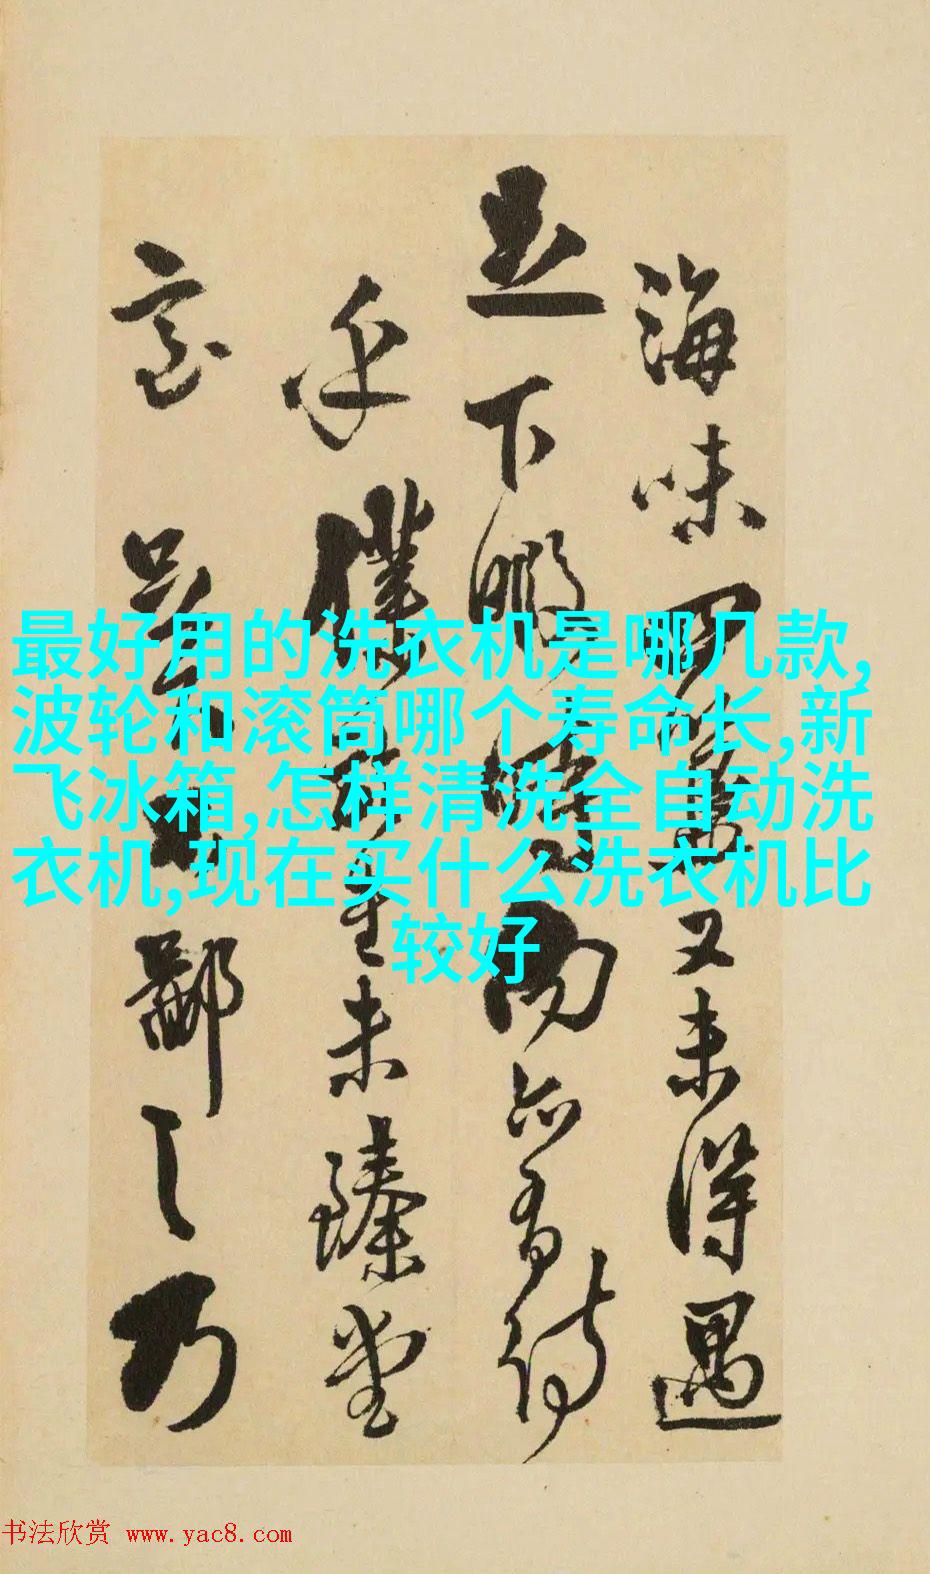 最好用的洗衣机是哪几款,
波轮和滚筒哪个寿命长,新
飞冰箱,怎样清洗全自动洗
衣机,现在买什么洗衣机比
较好
海味又未得遇
足下而亦有待
乎仆未臻堂
室鄙之乃
书法欣赏 www.yac8.com